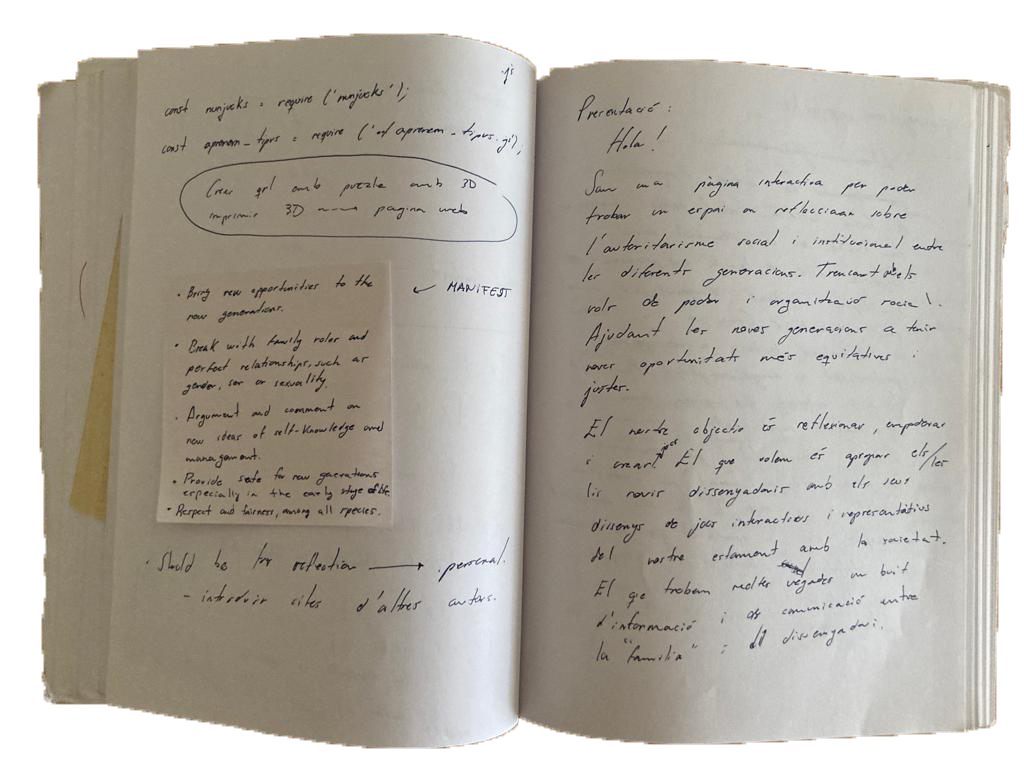 .js
const nunjucks = require ('nunjucks');
const aprenem_tipus = require ('aprenem_tipus.
Crear amb puzzle amb 3D
imprimir 3D → pagina web
• Bring new opportunities to the
new generations.
← MANIFEST
• Break with family roles and
perfect relationships, such as
gender, sex or sexuality.
• Argument and comment on
new ideas of self-knowledge and
management.
• Provide safe for new generations
especially in the early stage of life.
• Respect and fairness, among all species.
• Should be for reflection → personal.
- introduir cites d'altres autors.
Presentació:
Hola!
Som una pàgina interactiva per poder
trobar un espai on reflexionar sobre
l'autoritarisme social i institucional entre
les diferents generacions. Trencant dels
rols de poder i organització social.
Ajudant les noves generacions a tenir
noves oportunitats més equitatives i
justes.
El nostre objectiu és reflexionar, empoderar
i crear! El que volem és apropar els/les
lis novis dissenyadoris amb els seus
dissenys de jocs interactius i representatius
del nostre estament amb la societat.
El que trobem moltes vegades un buit
d'informació i de comunicació entre
la "família" i dissenyadori.